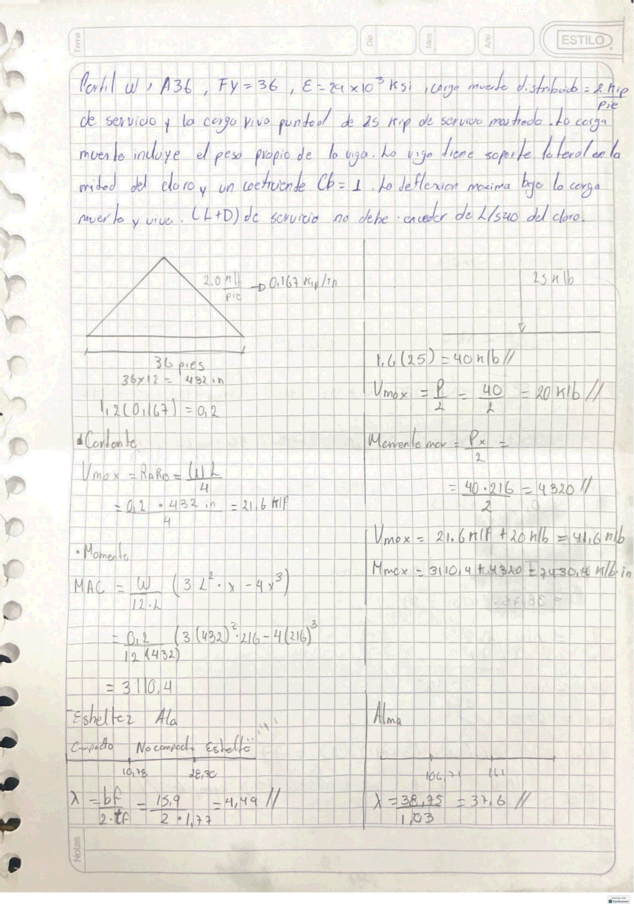 Tema
Dia
Mes
Año
ESTILO
Perfil W, A36, FY = 36, E = 29 x 10³ Ksi, carga muerta distribuida = 2 Kip/pie
de servicio y la carga viva puntual de 25 Kip de servicio mostrada. La carga
muerta incluye el peso propio de la viga. La viga tiene soporte lateral en la
mitad del claro y un coeficiente Cb = 1. La deflexion maxima bajo la carga
muerta y viva. (L+D) de servicio no debe exceder de L/540 del claro.
2.0 Klb/pie → 0,167 Kip/in
36 pies
36x12 = 432 in
1,2(0,167) = 0,2
• Cortante
Vmax = RARB = WL/4
= 0,2 * 432 in/4 = 21,6 Klf
• Momento
MAC = W/12·L (3L²·x - 4x³)
= 0,2/12(432) (3(432)²·216 - 4(216)³
= 3110,4
25 Klb
1,6(25) = 40 Klb //
Vmax = P/2 = 40/2 = 20 Klb //
Momento max = Px/2 =
= 40·216/2 = 4320 //
Vmax = 21,6 Klf + 20 Klb = 41,6 Klb
Mmax = 3110,4 + 4320 = 7430,4 Klb·in
Esbeltez Ala
Compacto No compacto Esbelto
10,78 28,30
λ = bf/2·tf = 15,9/2·1,77 = 4,49 //
Alma
106,71 161
λ = 38,75/1,03 = 37,6 //
Notas